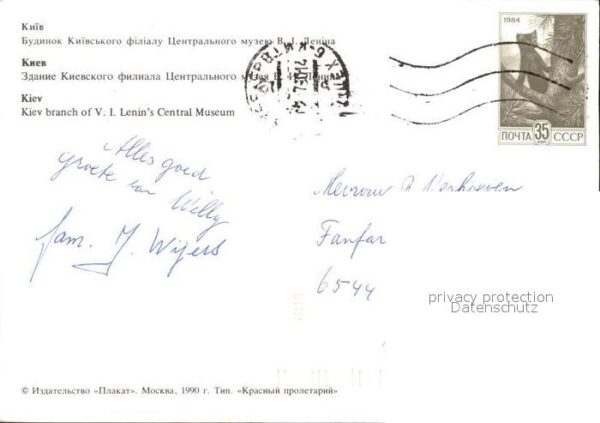 Київ
Будинок Київського філіалу Центрального музею В. І. Леніна
Киев
Здание Киевского филиала Центрального музея В. И. Ленина
Kiev
Kiev branch of V. I. Lenin's Central Museum
1984
ПОЧТА 35 КОП СССР
Alles goed
groete van Willy
fam. J. Wijers
Mevrouw A Verhoeven
Fanfar
6544
privacy protection
Datenschutz
© Издательство «Плакат». Москва, 1990 г. Тип. «Красный пролетарий»